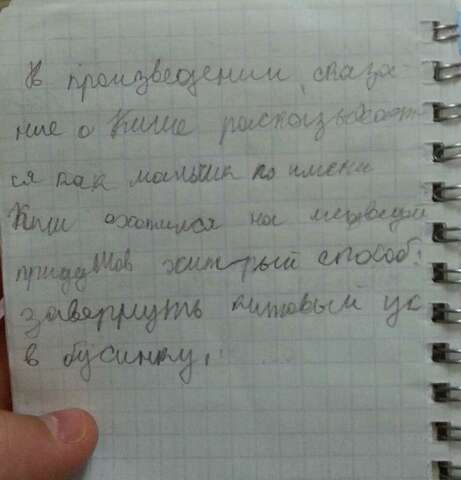 В произведении, сказа-
ние о Кише расказывает
ся как мальчик по имени
Киш охотился на медведей
придумав хитрый способ:
завернуть китовый ус
в бусинку,